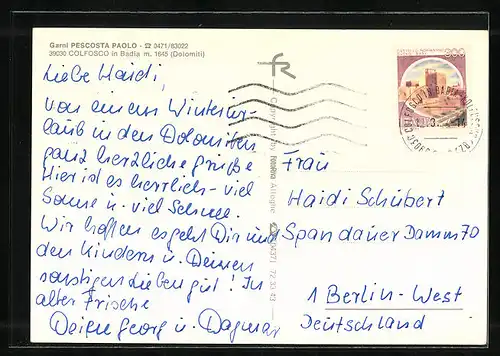 Garni PESCOSTA PAOLO - ☎ 0471/83022
39030 COLFOSCO in Badia m. 1645 (Dolomiti)
Liebe Haidi,
von einem Winterur-
laub in den Dolomiten
ganz herzliche Grüße
Hier ist es herrlich - viel
Sonne u. viel Schnee.
Wir hoffen es geht Dir und
den Kindern u. Deinen
sonstigen Lieben gut! In
alter Frische
Georg u. Dagmar
Copyright by
Frau
Haidi Schubert
Spandauer Damm 70
1 Berlin-West
Deutschland